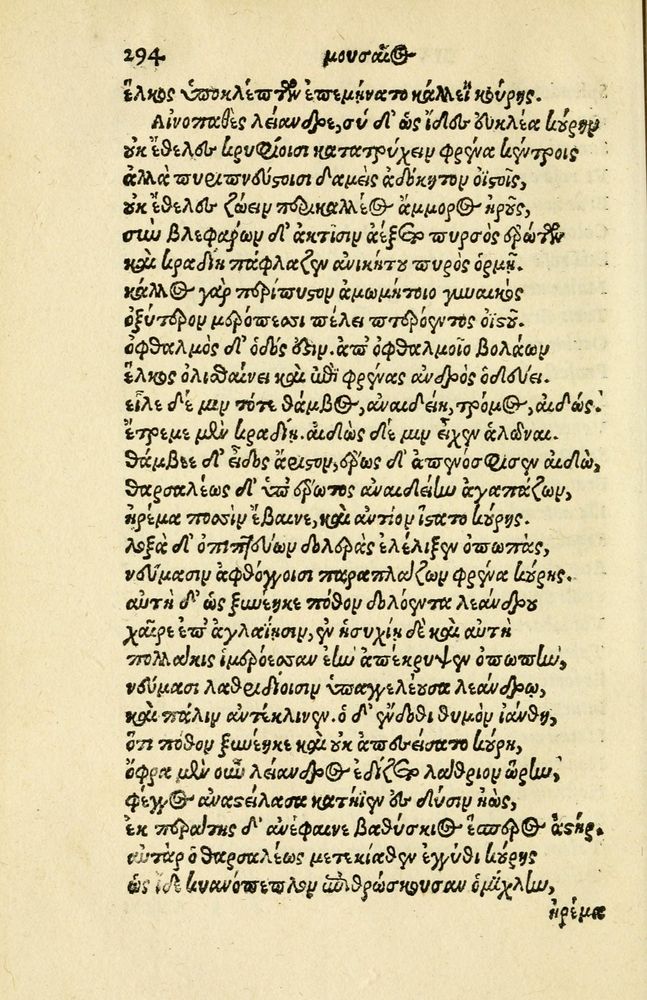 294 μουσαῖος
ἕλκος ὑποκλέπτων ἐπεμήνατο κάλλεϊ κούρης.
Αἰνοπαθὲς λείανδρε, σὺ δ' ὡς ἴδες εὐκλέα κούρην
οὐκ ἔθελες κρυφίοισι κατατρύχειν φρένα κέντροις
ἀλλὰ πυριπνεύστοισι δαμεὶς ἀδόκητον ὀϊστοῖς,
οὐκ ἔθελες ζώειν περικαλλέος ἄμμορος ἡροῦς,
σὺν βλεφάρων δ' ἀκτῖσιν ἀέξετο πυρσὸς ἐρώτων
καὶ κραδίη πάφλαζεν ἀνικήτου πυρὸς ὁρμῇ.
κάλλος γὰρ περίπυστον ἀμωμήτοιο γυναικὸς
ὀξύτερον μερόπεσσι πέλει πτερόεντος ὀϊστοῦ.
ὀφθαλμὸς δ' ὁδός ἐστιν. ἀπ' ὀφθαλμοῖο βολάων
ἕλκος ὀλισθαίνει καὶ ἐπὶ φρένας ἀνδρὸς ὁδεύει.
εἷλε δέ μιν τότε θάμβος, ἀναιδείη, τρόμος, αἰδώς.
ἔτρεμε μὲν κραδίη. αἰδὼς δέ μιν εἶχεν ἁλῶναι.
θάμβεε δ' εἶδος ἄριστον, ἔρως δ' ἀπενόσφισεν αἰδῶ,
θαρσαλέως δ' ὑπ' ἔρωτος ἀναιδείην ἀγαπάζων,
ἠρέμα ποσσὶν ἔβαινε, καὶ ἀντίον ἵστατο κούρης.
λοξὰ δ' ὀπιπτεύων δολερὰς ἐλέλιξεν ὀπωπὰς,
νεύμασιν ἀφθόγγοισι παραπλάζων φρένα κούρης.
αὐτὴ δ' ὡς ξυνέηκε πόθον δολόεντα λεάνδρου
χαῖρε ἐπ' ἀγλαΐῃσιν, ἐν ἡσυχίῃ δὲ καὶ αὐτὴ
πολλάκις ἱμερόεσσαν ἑὴν ἀπέκρυψεν ὀπωπὴν,
νεύμασι λαθριδίοισιν ὑπαγγελέουσα λεάνδρῳ,
καὶ πάλιν ἀντέκλινεν. ὁ δ' ἔνδοθι θυμὸν ἰάνθη,
ὅτι πόθον ξυνέηκε καὶ οὐκ ἀπεσείσατο κούρη,
ὄφρα μὲν οὖν λείανδρος ἐδίζετο λάθριον ὥρην,
φέγγος ἀναστείλασα κατήϊεν ἐς δύσιν ἠὼς,
ἐκ περάτης δ' ἀνέφαινε βαθύσκιος ἕσπερος ἀστήρ.
αὐτὰρ ὁ θαρσαλέως μετεκίαθεν ἐγγύθι κούρης
ὡς ἴδε κυανόπεπλον ἐπιθρώσκουσαν ὁμίχλην,
ἠρέμα